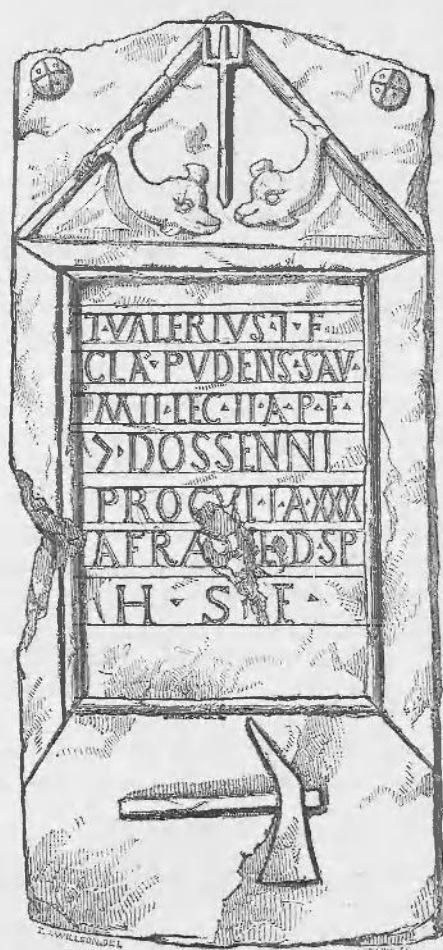 T·VALERIVS·T·F
CLA·PVDENS·SAV·
MIL·LEG·II·A·P·F·
>·DOSSENNI
PROCVLI·A·XXX
D·SP
H·S·E·
WILLSON.DEL